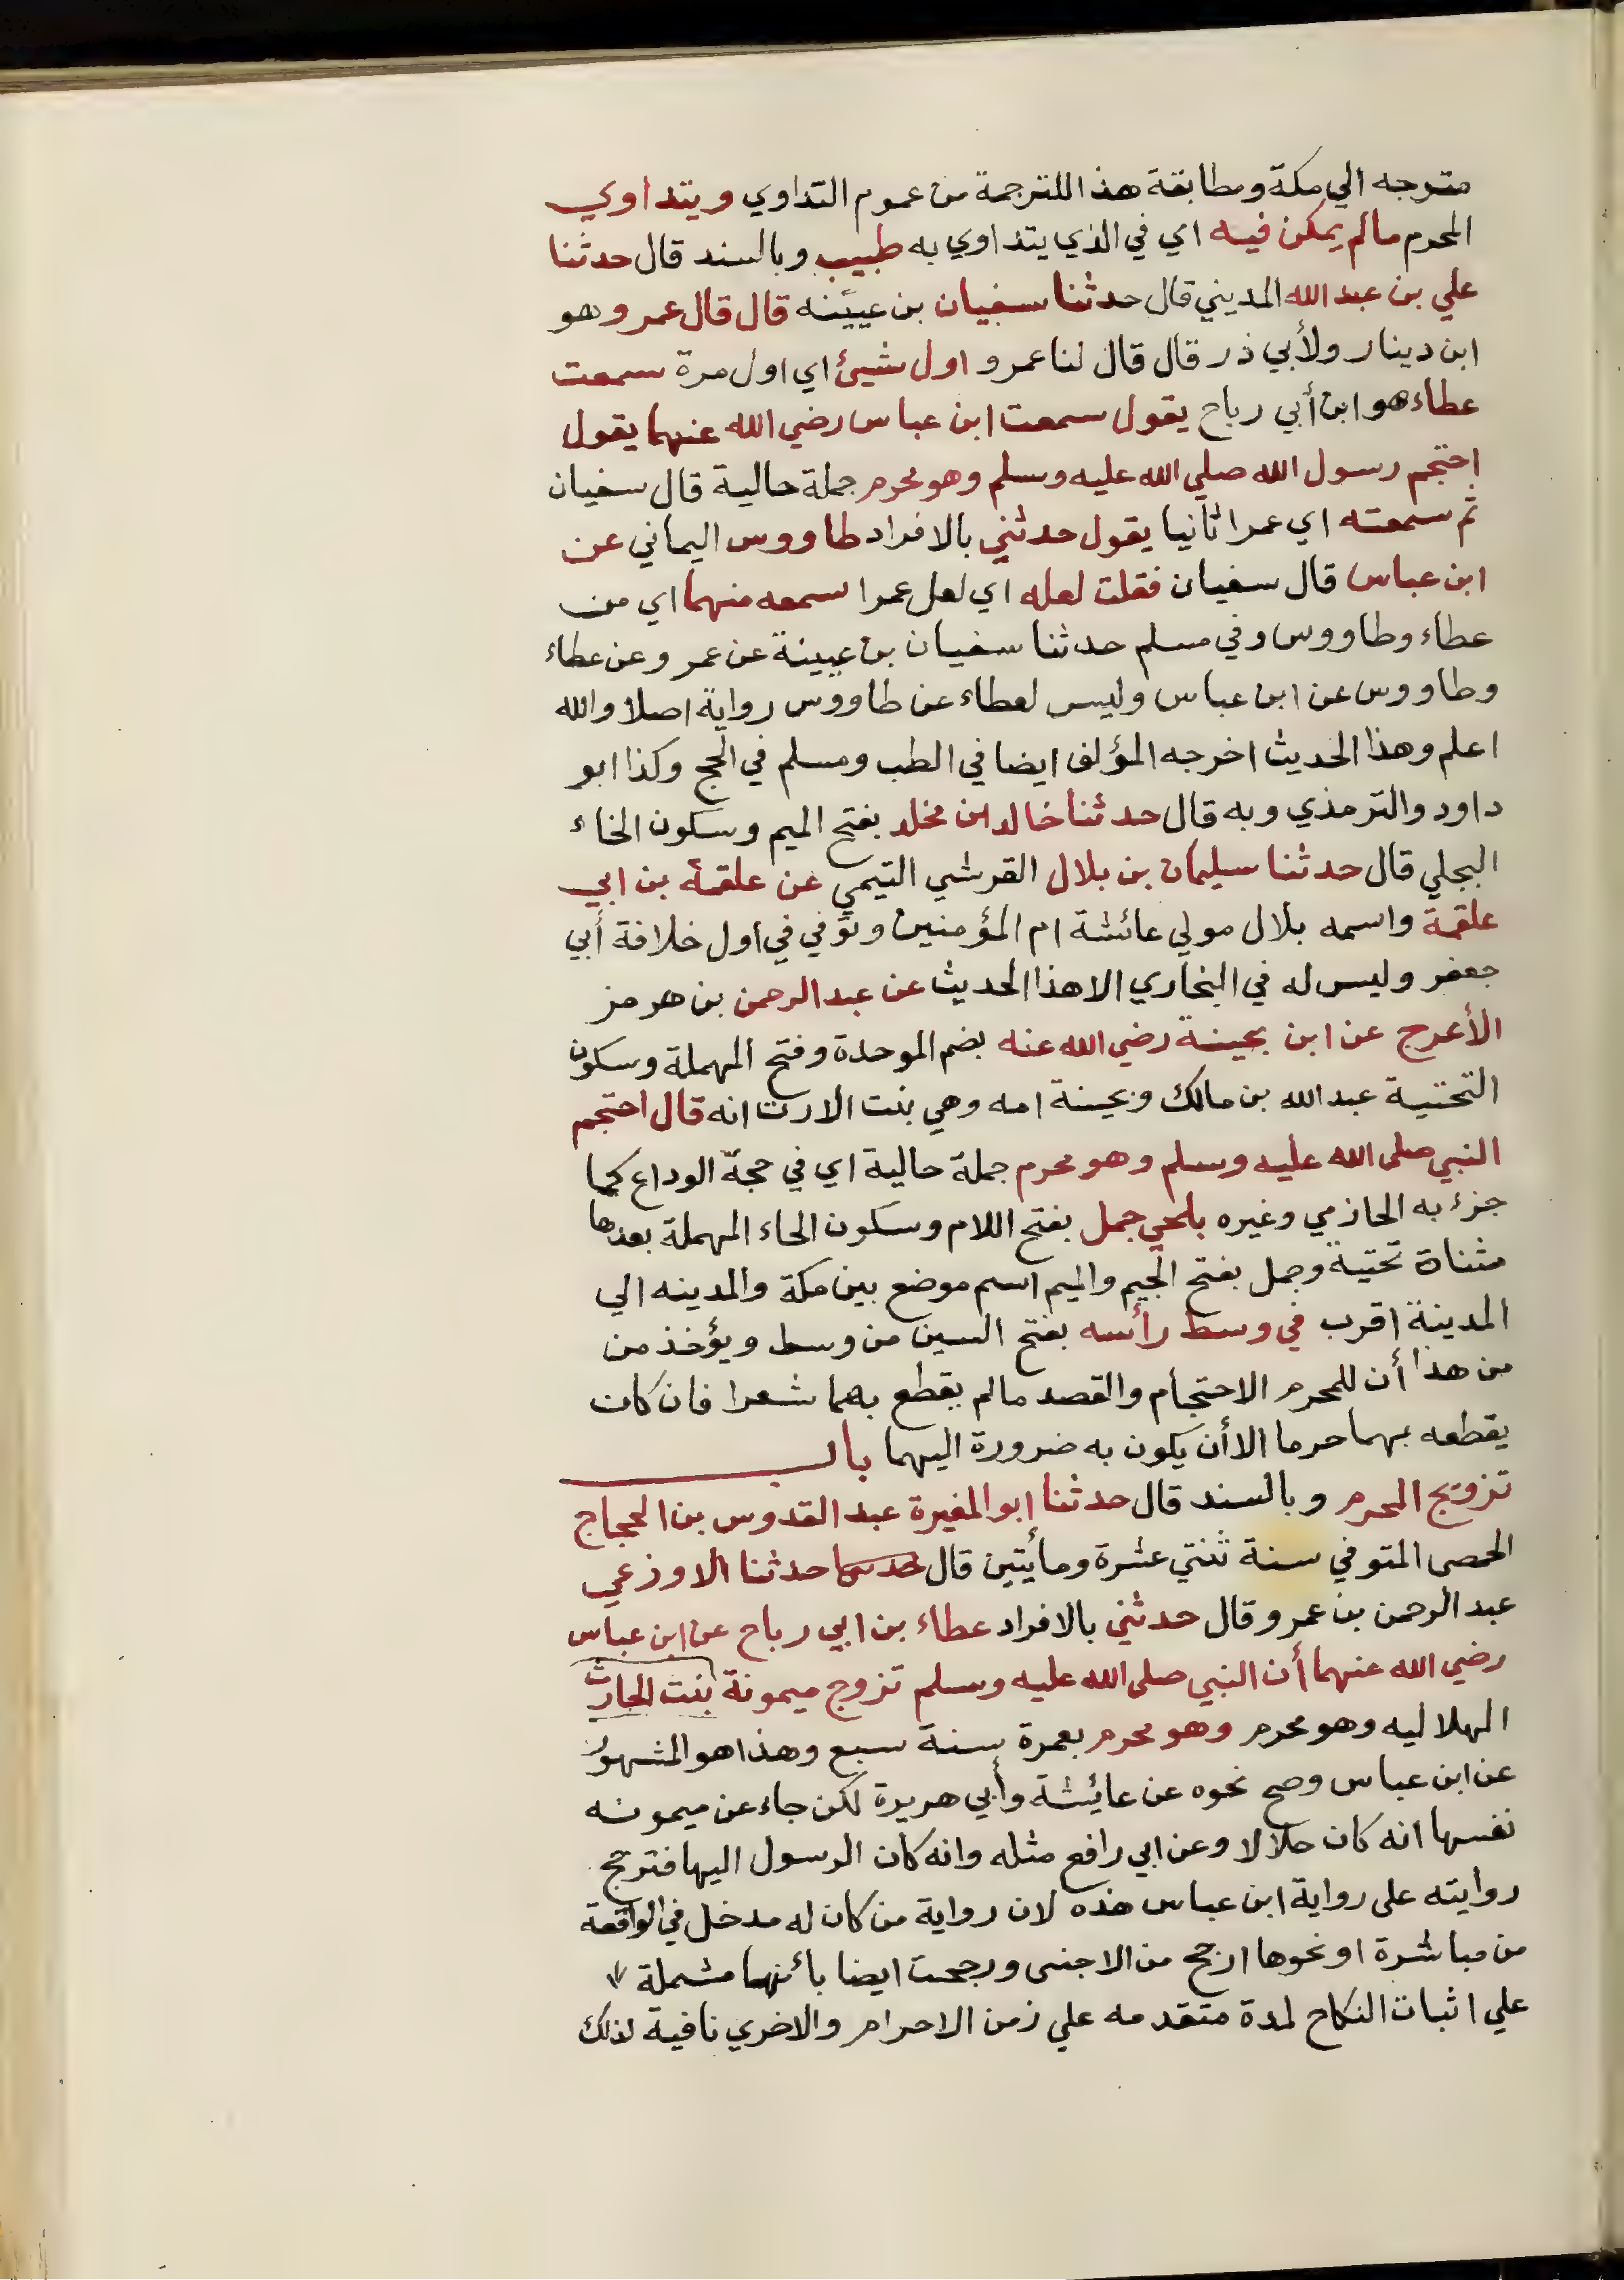 متوجه الي مكة ومطابقة هذا للترجمة من عموم التداوي ويتداوي
المحرم مالم يكن فيه اي في الذي يتداوي به طيب وبالسند قال حدثنا
علي بن عبد الله المديني قال حدثنا سفيان بن عيينه قال قال عمرو وهو
ابن دينار ولأبي ذر قال قال لنا عمرو اول شيئ اي اول مرة سمعت
عطاء هو ابن أبي رباح يقول سمعت ابن عباس رضي الله عنهما يقول
احتجم رسول الله صلي الله عليه وسلم وهو محرم جملة حالية قال سفيان
ثم سمعته اي عمرا ثانيا يقول حدثني بالافراد طاووس اليماني عن
ابن عباس قال سفيان فقلت لعله اي لعل عمرا سمعه منهما اي من
عطاء وطاووس وفي مسلم حدثنا سفيان بن عيينة عن عمرو عن عطاء
وطاووس عن ابن عباس وليس لعطاء عن طاووس رواية اصلا والله
اعلم وهذا الحديث اخرجه المؤلف ايضا في الطب ومسلم في الحج وكذا ابو
داود والترمذي وبه قال حدثنا خالد ابن مخلد بفتح الميم وسكون الخاء
البجلي قال حدثنا سليمان بن بلال القرشي التيمي عن علقمة بن ابي
علقمة واسمه بلال مولي عائشة ام المؤمنين وتوفي في اول خلافة أبي
جعفر وليس له في البخاري الا هذا الحديث عن عبد الرحمن بن هرمز
الأعرج عن ابن بحينة رضي الله عنه بضم الموحدة وفتح المهملة وسكون
التحتية عبد الله بن مالك وبحينة امه وهي بنت الارت انه قال احتجم
النبي صلى الله عليه وسلم وهو محرم جملة حالية اي في حجة الوداع كما
جزء به الحازمي وغيره بلحي جمل بفتح اللام وسكون الحاء المهملة بعدها
مثناة تحتية وجمل بفتح الجيم والميم اسم موضع بين مكة والمدينه الي
المدينة اقرب في وسط رأسه بفتح السين من وسط ويؤخذ من
من هذا أن للمحرم الاحتجام والقصد مالم يقطع بهما شعرا فان كان
يقطعه بهما حرما الا أن يكون به ضرورة اليهما باب
تزويج المحرم وبالسند قال حدثنا ابو المغيرة عبد القدوس بن الحجاج
الحمصى المتوفي سنة ثنتي عشرة ومأيتين قال حدثنا الاوزعي
عبد الرحمن بن عمرو قال حدثني بالافراد عطاء بن ابي رباح عن ابن عباس
رضي الله عنهما أن النبي صلى الله عليه وسلم تزوج ميمونة بنت الحارث
الهلاليه وهو محرم وهو محرم بعمرة سنة سبع وهذا هو المشهور
عن ابن عباس وصح نحوه عن عايئشة وأبي هريرة لكن جاء عن ميمونه
نفسها انه كان حلالا وعن ابي رافع مثله وانه كان الرسول اليها فترجح
روايته على رواية ابن عباس هذه لان رواية من كان له مدخل في الواقعة
من مباشرة او نحوها ارجح من الاجنبى ورجحت ايضا بأنها مشملة
علي اثبات النكاح لمدة متقدمه علي زمن الاحرام والاخري نافية لذلك